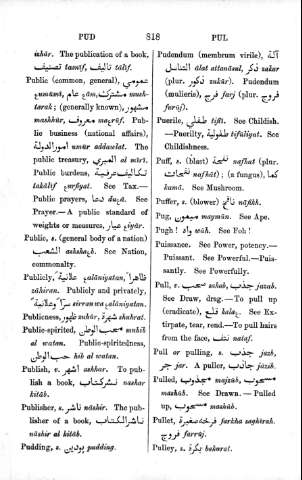 PUD 818 PUL
izhār. The publication of a book,
تصنيف taṣnīf, تاليف tālīf.
Public (common, general), عمومي
ʿumūmī, عام ʿāmm, مشترك mush-
tarak; (generally known), مشهور
mashhūr, معروف maʿrūf. Pub-
lic business (national affairs),
امور الدولة umūr addawlat. The
public treasury, الميري al mīrī.
Public burdens, تكاليف عرفية
takālīf ʿurfīyat. See Tax.—
Public prayers, دعا duʿā. See
Prayer.—A public standard of
weights or measures, عيار ʿiyār.
Public, s. (general body of a nation)
الشعب ashshaʿb. See Nation,
commonalty.
Publicly, علانية ʿalāniyatan, ظاهراً
zāhiran. Publicly and privately,
سراً وعلانية sirran wa ʿalāniyatan.
Publicness, ظهور zuhūr, شهرة shuhrat.
Public-spirited, محب الوطن muhib
al watan. Public-spiritedness,
حب الوطن hib al watan.
Publish, v. اشهر ashhar. To pub-
lish a book, نشر كتاب nashar
kitāb.
Publisher, s. ناشر nāshir. The pub-
lisher of a book, ناشر الكتاب
nāshir al kitāb.
Pudding, s. پودين pudding.
Pudendum (membrum virile), آلة
التناسل ālat attanāsul, ذكر zakar
(plur. ذكور zukūr). Pudendum
(mulieris), فرج farj (plur. فروج
farūj).
Puerile, طفلي tiflī. See Childish.
—Puerility, طفولية tifūlīyat. See
Childishness.
Puff, s. (blast) نفخة nafkhat (plur.
نفخات nafkhāt); (a fungus), كما
kamā. See Mushroom.
Puffer, s. (blower) نافخ nāfikh.
Pug, ميمون maymūn. See Ape.
Pugh! واه wāh. See Foh!
Puissance. See Power, potency.—
Puissant. See Powerful.—Puis-
santly. See Powerfully.
Pull, v. سحب sahab, جذب jazab.
See Draw, drag.—To pull up
(eradicate), قلع kalaʿ. See Ex-
tirpate, tear, rend.—To pull hairs
from the face, نتف nataf.
Pull or pulling, s. جذب jazb,
جر jar. A puller, جاذب jāzib.
Pulled, مجذوب majzūb, مسحوب
mashūb. See Drawn.—Pulled
up, مسحوب mashūb.
Pullet, فرخة صغيرة farkha saghīrah,
فروج farrūj.
Pulley, s. بكرة bakarat.